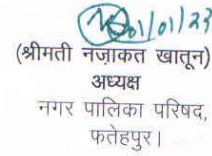 01/01/23
(श्रीमती नज़ाकत खातून)
अध्यक्ष
नगर पालिका परिषद,
फतेहपुर।